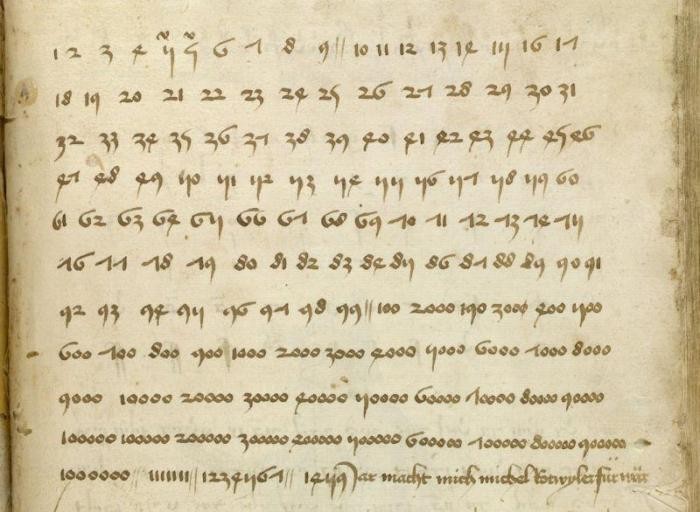 1 2 3 4 5 5 6 7 8 9 // 10 11 12 13 14 15 16 17
18 19 20 21 22 23 24 25 26 27 28 29 30 31
32 33 34 35 36 37 38 39 40 41 42 43 44 45 46
47 48 49 50 51 52 53 54 55 56 57 58 59 60
61 62 63 64 65 66 67 68 69 70 71 72 73 74 75
76 77 78 79 80 81 82 83 84 85 86 87 88 89 90 91
92 93 94 95 96 97 98 99 // 100 2000 190 3000 400 500
600 700 800 900 1000 2000 3000 4000 5000 6000 7000 8000
9000 10000 20000 30000 40000 50000 60000 70000 80000 90000
100000 100000 200000 300000 400000 500000 600000 700000 800000 900000
1000000 // 1111111 // 1234567 // 1459 Jar macht mich michel rotwyler für war